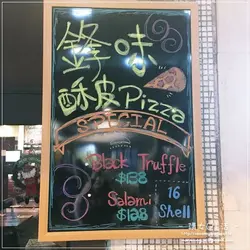 鋒味
酥皮Pizza
SPECIAL
Black Truffle
$138
Salami
$128
16
Shell